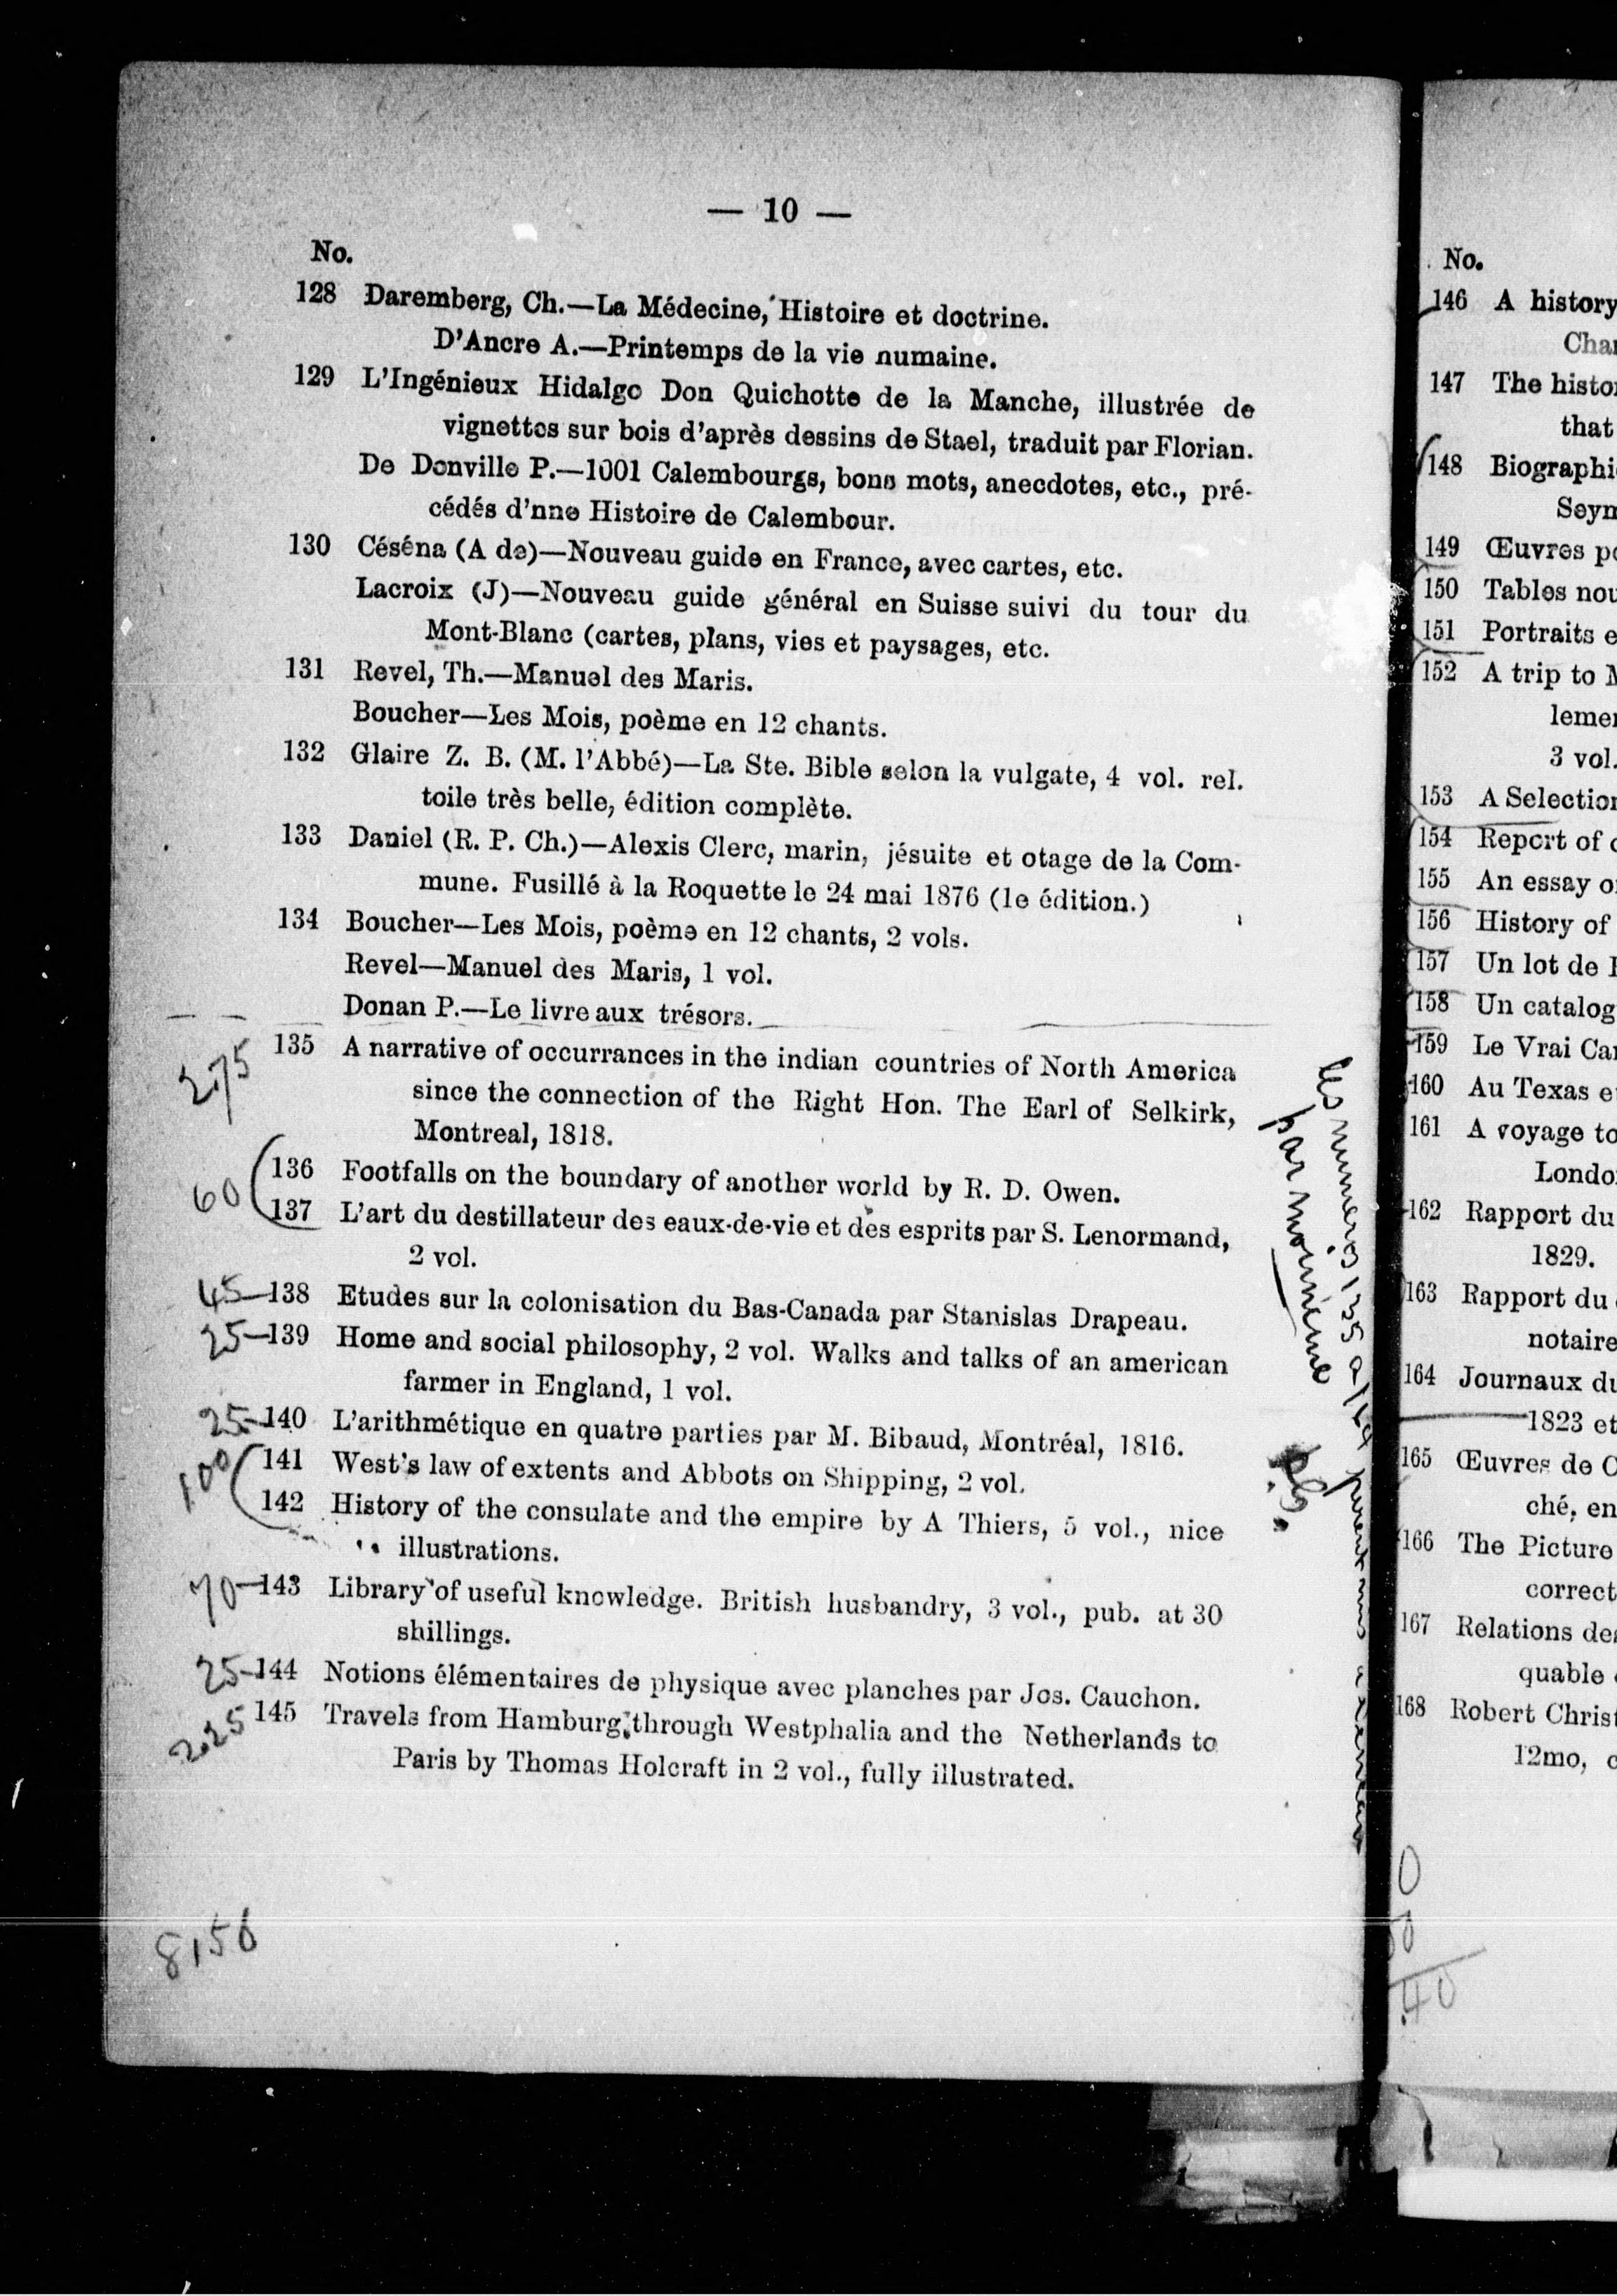 — 10 —
No.
128 Daremberg, Ch.—La Médecine, Histoire et doctrine.
D'Ancre A.—Printemps de la vie numaine.
129 L'Ingénieux Hidalgo Don Quichotte de la Manche, illustrée de
vignettes sur bois d'après dessins de Stael, traduit par Florian.
De Donville P.—1001 Calembourgs, bons mots, anecdotes, etc., pré-
cédés d'nne Histoire de Calembour.
130 Céséna (A de)—Nouveau guide en France, avec cartes, etc.
Lacroix (J)—Nouveau guide général en Suisse suivi du tour du
Mont-Blanc (cartes, plans, vies et paysages, etc.
131 Revel, Th.—Manuel des Maris.
Boucher—Les Mois, poème en 12 chants.
132 Glaire Z. B. (M. l'Abbé)—La Ste. Bible selon la vulgate, 4 vol. rel.
toile très belle, édition complète.
133 Daniel (R. P. Ch.)—Alexis Clerc, marin, jésuite et otage de la Com-
mune. Fusillé à la Roquette le 24 mai 1876 (1e édition.)
134 Boucher—Les Mois, poème en 12 chants, 2 vols.
Revel—Manuel des Maris, 1 vol.
Donan P.—Le livre aux trésors.
2.75 135 A narrative of occurrances in the indian countries of North America
since the connection of the Right Hon. The Earl of Selkirk,
Montreal, 1818.
136 Footfalls on the boundary of another world by R. D. Owen.
60
137 L'art du destillateur des eaux-de-vie et des esprits par S. Lenormand,
2 vol.
45—138 Etudes sur la colonisation du Bas-Canada par Stanislas Drapeau.
25—139 Home and social philosophy, 2 vol. Walks and talks of an american
farmer in England, 1 vol.
25—140 L'arithmétique en quatre parties par M. Bibaud, Montréal, 1816.
100 141 West's law of extents and Abbots on Shipping, 2 vol.
142 History of the consulate and the empire by A Thiers, 5 vol., nice
illustrations.
70—143 Library of useful knowledge. British husbandry, 3 vol., pub. at 30
shillings.
25—144 Notions élémentaires de physique avec planches par Jos. Cauchon.
2.25 145 Travels from Hamburg, through Westphalia and the Netherlands to
Paris by Thomas Holcraft in 2 vol., fully illustrated.
les numéros 135 a
par moi même
No.
146 A history
147 The
that
148
149 Œuvres
150 Tables
151 Portraits
152 A trip to
3 vol.
153 A
154 Report of
155 An essay
156 History of
157 Un lot de
158 Un
159 Le Vrai
160 Au Texas
161 A voyage to
162 Rapport du
1829.
163 Rapport du
notaire
164 Journaux
1823 et
165 Œuvres de
ché, en
166 The Picture
correct
167 Relations
quable
168 Robert
12mo,
40